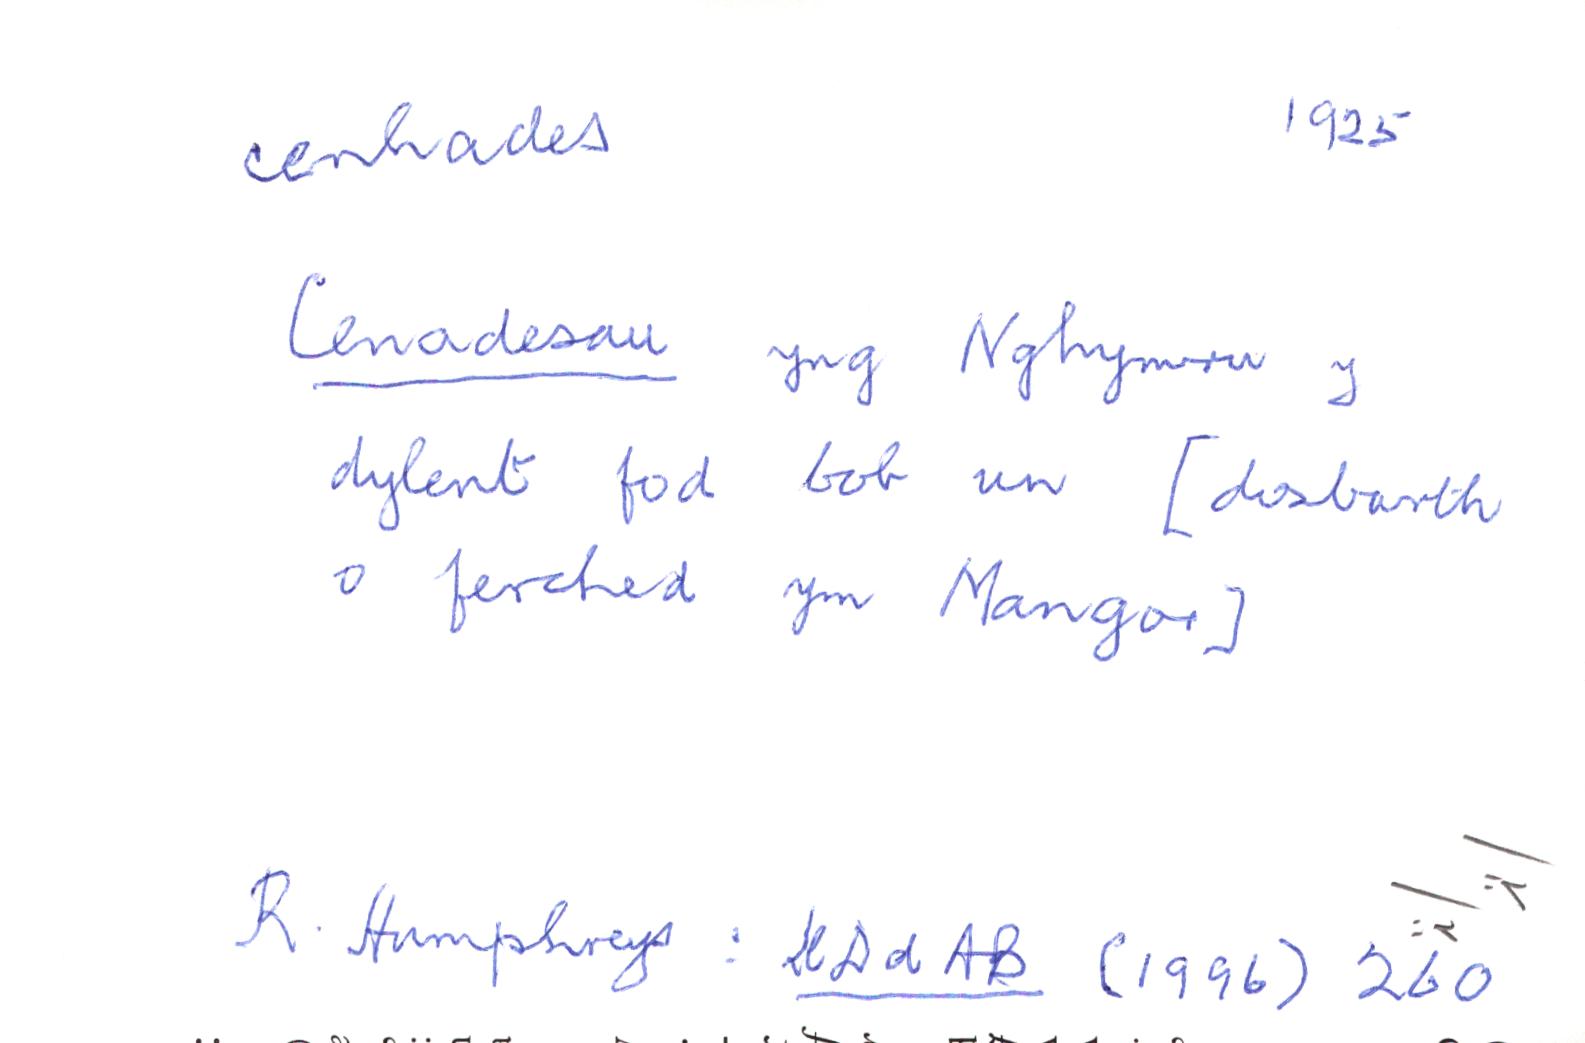 cenhades 1925
Cenadesau yng Nghymru y
dylent fod bob un [dosbarth
o ferched ym Mangor]
R. Humphreys : (1996) 260